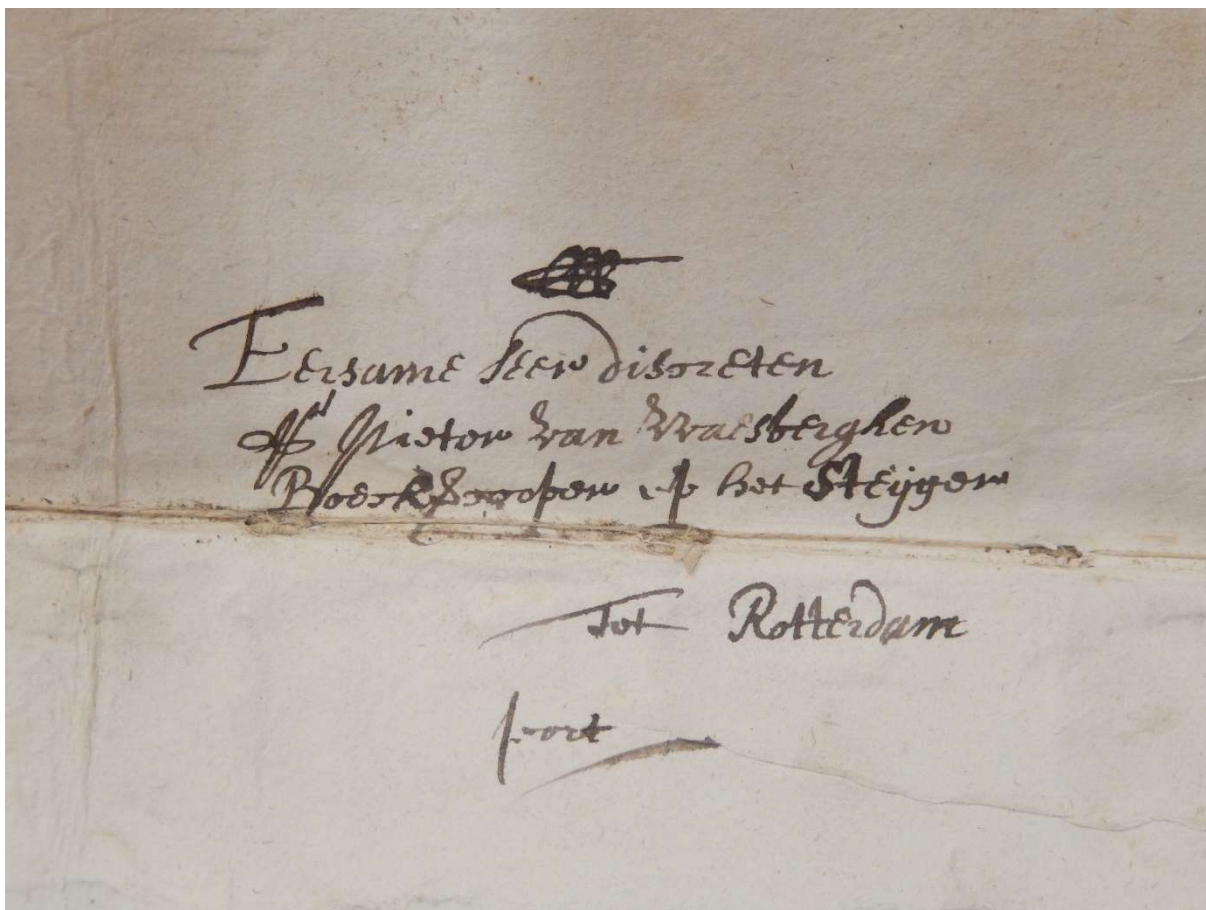 Eersame seer discreten
Sr Pieter van Waesberghen
Boeckverooper op het Steijger
Tot Rotterdam
port